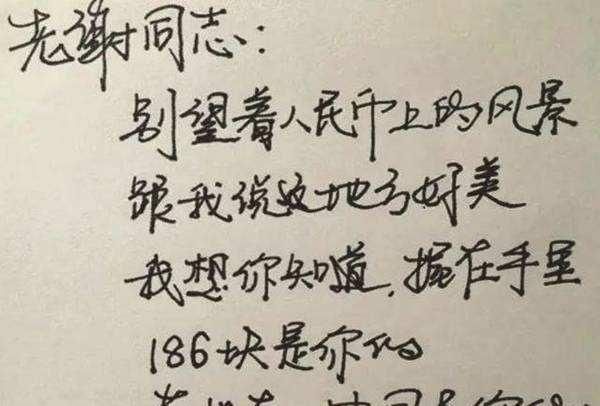 老谢同志：
别望着人民币上的风景
跟我说这地方好美
我想你知道，握在手里
186块是你的